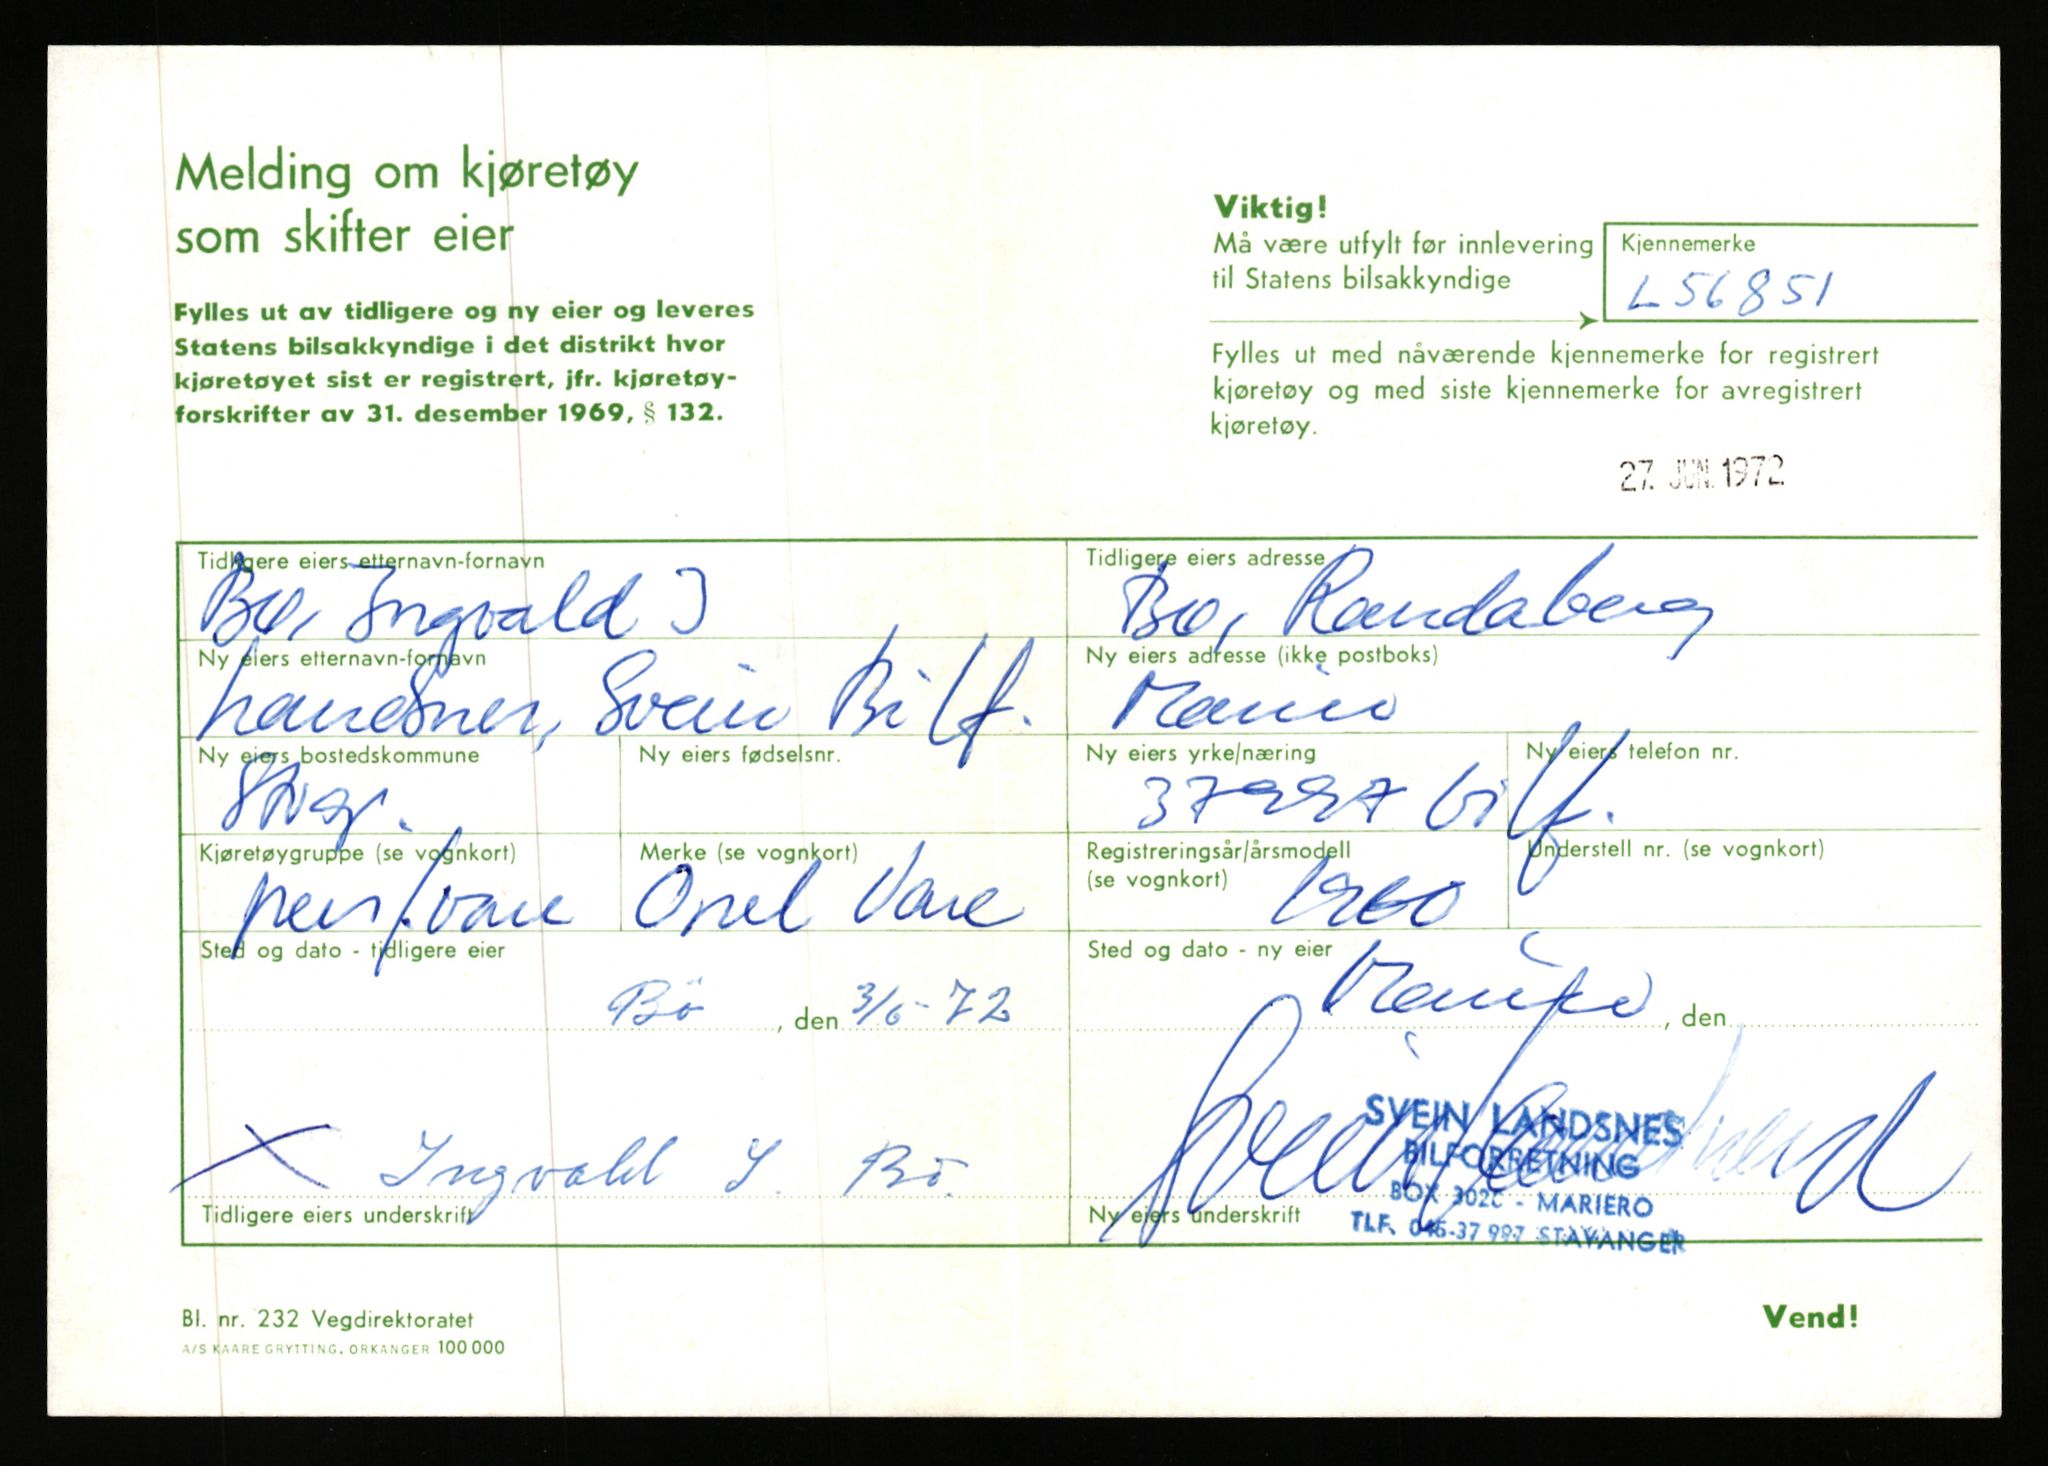 Melding om kjøretøy
som skifter eier
Fylles ut av tidligere og ny eier og leveres
Statens bilsakkyndige i det distrikt hvor
kjøretøyet sist er registrert, jfr. kjøretøy-
forskrifter av 31. desember 1969, § 132.
Viktig!
Må være utfylt før innlevering
til Statens bilsakkyndige
Kjennemerke
L 56851
Fylles ut med nåværende kjennemerke for registrert
kjøretøy og med siste kjennemerke for avregistrert
kjøretøy.
27. JUN. 1972
Tidligere eiers etternavn-fornavn
Bø, Ingvald J
Tidligere eiers adresse
Bø, Randaberg
Ny eiers etternavn-fornavn
Landsnes, Svein Bilf.
Ny eiers adresse (ikke postboks)
Ny eiers bostedskommune
Stvgr.
Ny eiers fødselsnr.
Ny eiers yrke/næring
37997 bilf.
Ny eiers telefon nr.
Kjøretøygruppe (se vognkort)
pers/vare
Merke (se vognkort)
Opel Vare
Registreringsår/årsmodell
(se vognkort)
1960
Understell nr. (se vognkort)
Sted og dato - tidligere eier
Bö, den 3/6-72
Sted og dato - ny eier
, den
X Ingvald J. Bö.
Tidligere eiers underskrift
Svein Landsnes
SVEIN LANDSNES
BILFORRETNING
BOX 3028 - MARIERO
TLF. 045-37 997 STAVANGER
Ny eiers underskrift
Bl. nr. 232 Vegdirektoratet
A/S KAARE GRYTTING, ORKANGER 100 000
Vend!